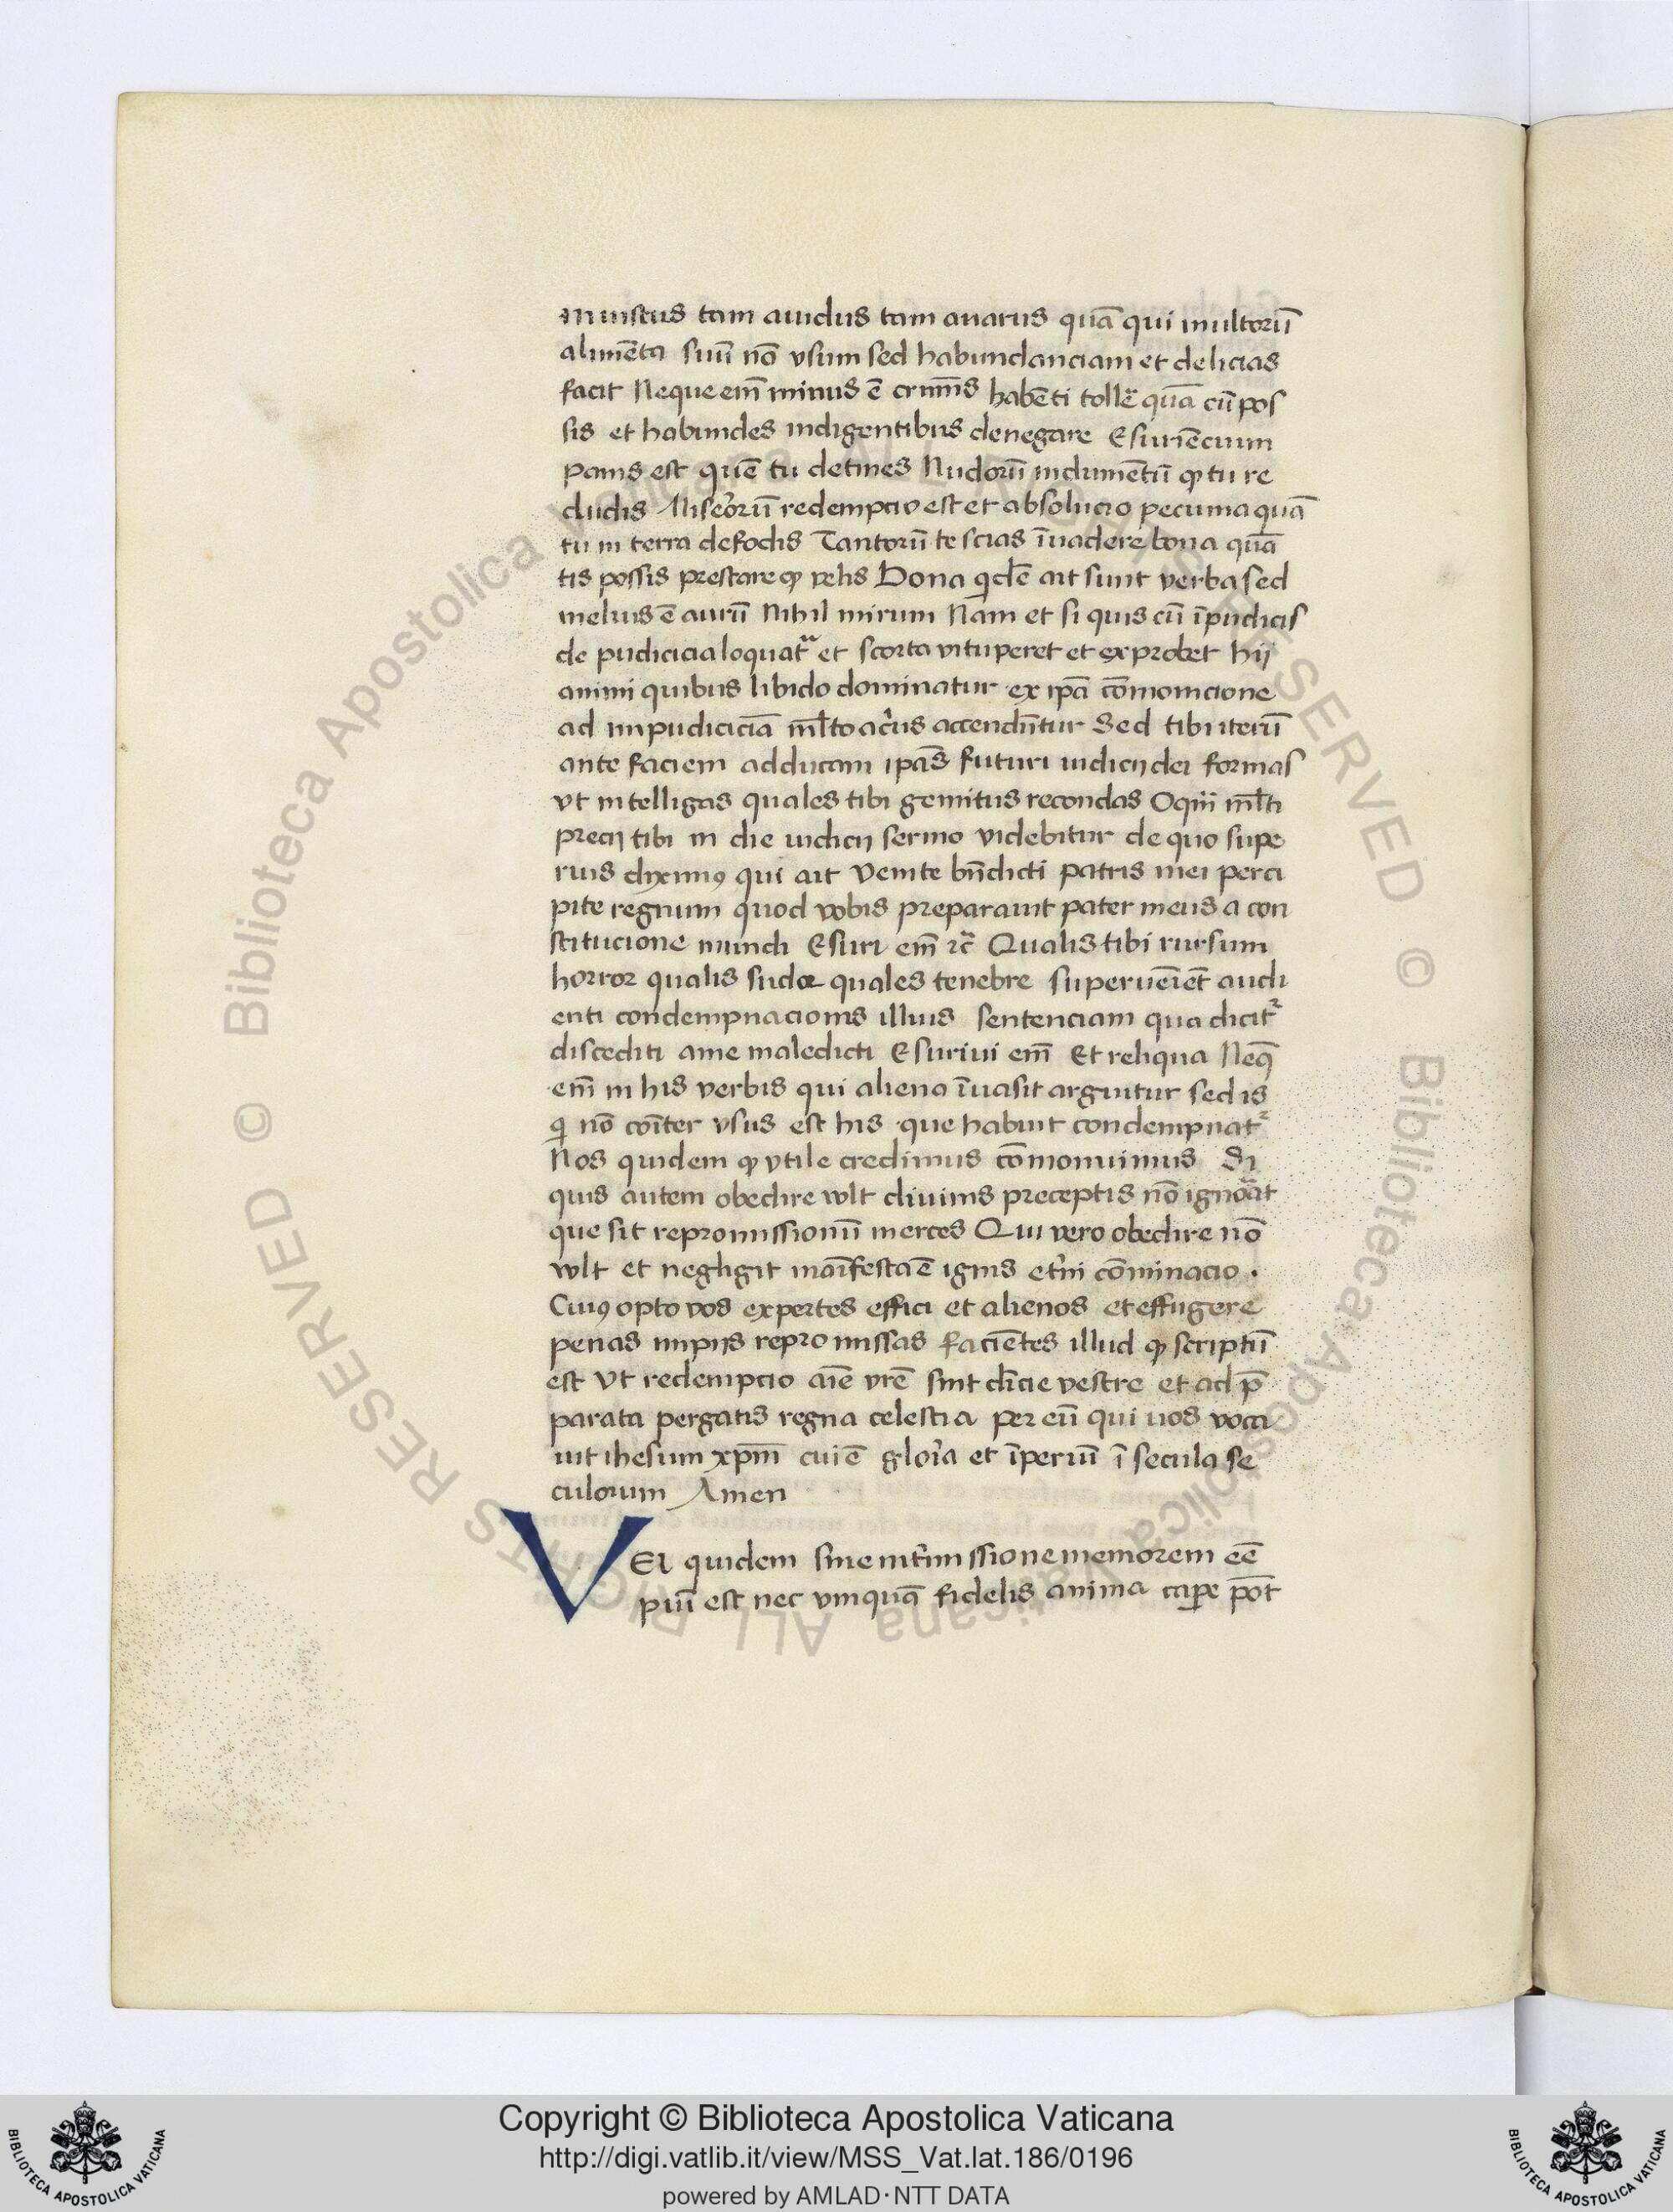 iniustus tam auidus tam auarus quā qui multorū
alimēta suū nō vsum sed habundanciam et delicias
facit Neque em̄ minus ē crim̄is habēti tollē quā cū pos
sis et habundes indigentibus denegare Esuriēcium
panis est quē tu detines Nudorū indumētū ꝙ tu re
cludis Miserorū redempcio est et absolucio pecunia quā
tu in terra defodis Tantorū te scias īuadere bona quā
tis possis prestare ꝙ velis Bona qͥdē ait sunt verba sed
melius ē aurū Nihil mirum Nam et si quis cū īpudicis
de pudicicia loquatᷓ et scorta vituperet et exprobet hij
animi quibus libido dominatur ex ip̄a cōmonicione
ad impudiciciā ml̄to acrius accendūtur Sed tibi iterū
ante faciem adducam ip̄as futuri iudicij dei formas
vt intelligas quales tibi gemitus recondas O qm̄ ml̄ti
precij tibi in die iudicij sermo videbitur de quo supe
rius diximꝰ qui ait Venite bn̄dicti patris mei perci
pite regnum quod vobis preparauit pater meus a con
stitucione mundi Esuri em̄ ⁊c̄ Qualis tibi rursum
horror qualis sudor quales tenebre superuēiēt audi
enti condempnacionis illius sentenciam qua dicit᷑
discediti a me maledicti Esuriui em̄ Et reliqua Neqꝫ
em̄ in his verbis qui aliena īuasit arguitur sed is
qͥ nō cōiter vsus est his que habuit condempnat᷑
Nos quidem ꝙ vtile credimus cōmonuimus Si
quis autem obedire wlt diuinis preceptis nō ignorᷓat
que sit repromissionū merces Qui vero obedire nō
wlt et negligit māifesta ē ignis et͛ni cōminacio .
Cuiꝰ opto vos expertes effici et alienos et effugere
penas impijs repromissas faciētes illud ꝙ scriptū
est Vt redempcio aīe vr̄e sint dīcie vestre et ad p̄
parata pergatis regna celestia per eū qui uos voca
uit ihesum xp̄m cui ē gloria et īperiū ī secula se
culorum Amen
VEI quidem sine int͛missione memorem eē
piū est nec vmquā fidelis anima cape pōt
Copyright © Biblioteca Apostolica Vaticana
http://digi.vatlib.it/view/MSS_Vat.lat.186/0196
powered by AMLAD·NTT DATA
BIBLIOTECA APOSTOLICA VATICANA
BIBLIOTECA APOSTOLICA VATICANA
© Biblioteca Apostolica Vaticana ALL RIGHTS RESERVED © Biblioteca Apostolica Vaticana ALL RIGHTS RESERVED